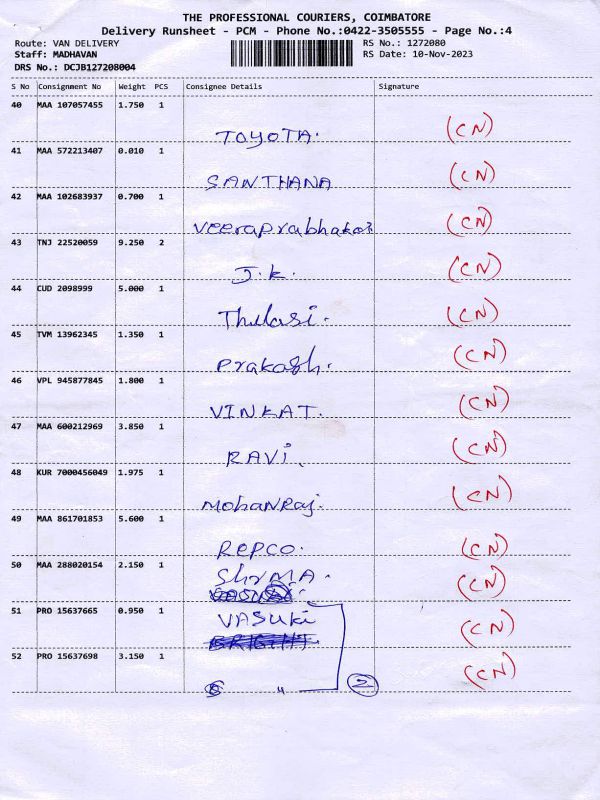 THE PROFESSIONAL COURIERS, COIMBATORE
Delivery Runsheet - PCM - Phone No.:0422-3505555 - Page No.:4
Route: VAN DELIVERY RS No.: 1272080
Staff: MADHAVAN RS Date: 10-Nov-2023
DRS No.: DCJB127208004
S No Consignment No Weight PCS Consignee Details Signature
40 MAA 107057455 1.750 1
TOYOTA. (CN)
41 MAA 572213407 0.010 1
SANTHANA (CN)
42 MAA 102683937 0.700 1
Veeraprabhakar (CN)
43 TNJ 22520059 9.250 2
J.K. (CN)
44 CUD 2098999 5.000 1
Thulasi. (CN)
45 TVM 13962345 1.350 1
Prakash. (CN)
46 VPL 945877845 1.800 1
VINKAT. (CN)
47 MAA 600212969 3.850 1
RAVI. (CN)
48 KUR 7000456049 1.975 1
MohanRaj. (CN)
49 MAA 861701853 5.600 1
REPCO. (CN)
50 MAA 288020154 2.150 1
(CN)
51 PRO 15637665 0.950 1
VASUKi (CN)
52 PRO 15637698 3.150 1
(CN)
" 2